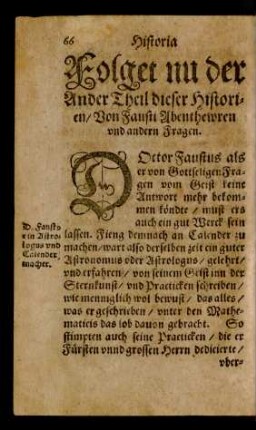 66 Historia
Folget nu der
Ander Theil dieser Histori-
en/ Von Fausti Abenthewren
vnd andern Fragen.
DOctor Faustus als
er von Gottseligen Fra-
gen vom Geist keine
Antwort mehr bekom-
men kondte / must ers
auch ein gut Werck sein
lassen. Fieng demnach an Calender zu
machen / wart also derselben zeit ein guter
Astronomus oder Astrologus / gelehrt /
vnd erfahren / von seinem Geist inn der
Sternkunst / vnd Practicken schreiben /
wie menniglich wol bewust / das alles /
was er geschrieben / vnter den Mathe-
maticis das lob dauon gebracht. So
stimpten auch seine Practicken / die er
Fürsten vnnd grossen Herrn dedicierte /
vber-
D. Faustus
ein Astro-
logus vnd
Calender-
macher.